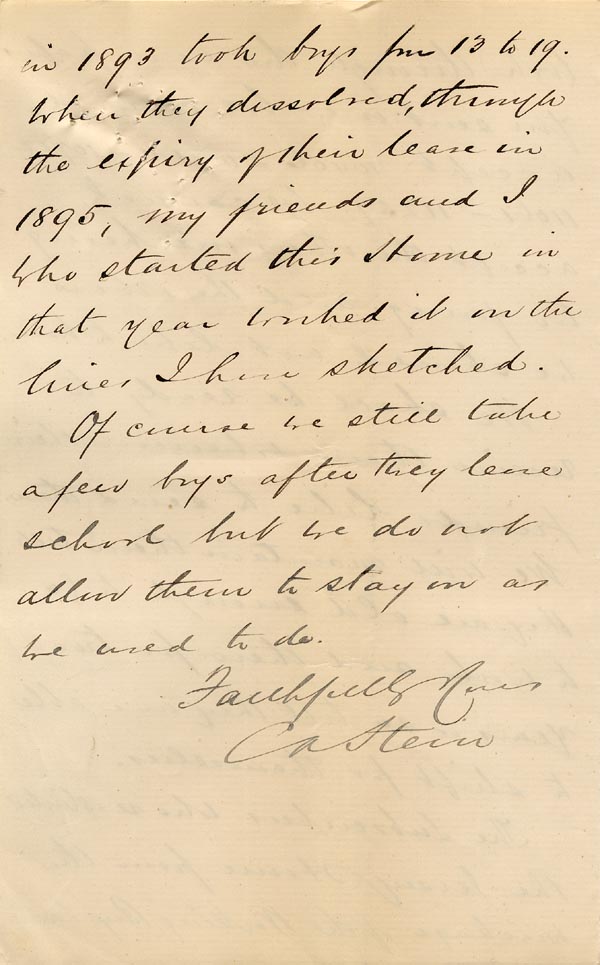 in 1893 took boys from 13 to 19.
When they dissolved, through
the expiry of their lease in
1895, my friends and I
who started this Home in
that year worked it on the
lines I have sketched.
Of course we still take
a few boys after they leave
school but we do not
allow them to stay on as
we used to do.
Faithfully Yours
CA Stein